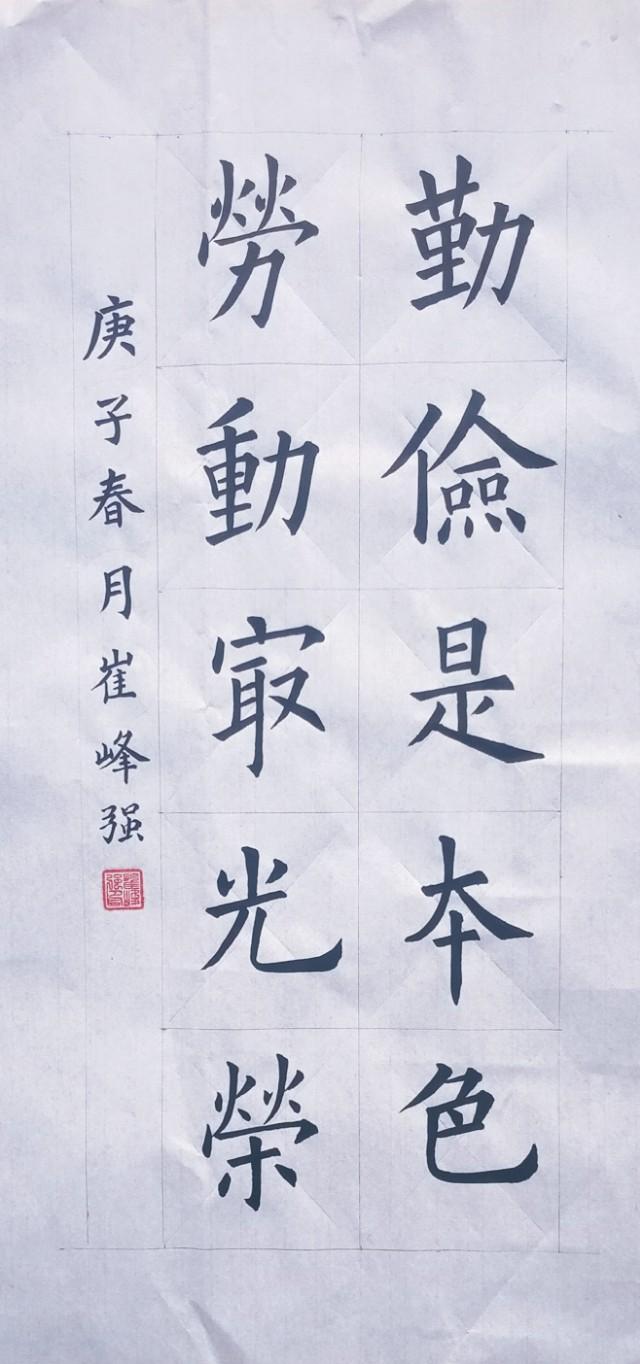 勤儉是本色
勞動㝡光榮
庚子春月崔峰强